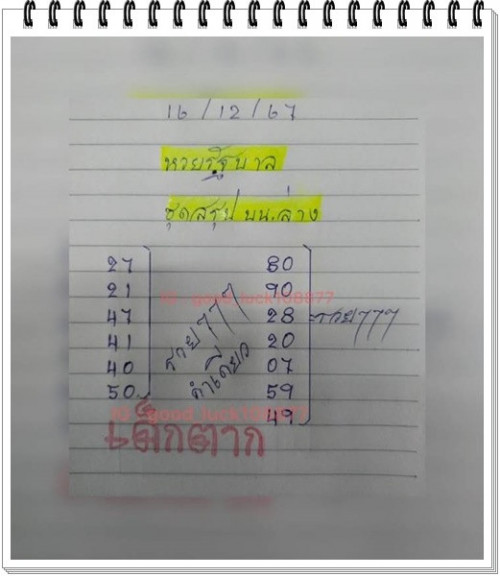 16/12/67
หวยรัฐบาล
ชุดสรุป บน.ล่าง
27
21
47
41
40
50
รวย777
คำเดียว
80
90
28
20
07
59
49
รวย777
ID : good_luck168877
ID : good_luck168877
เด็กตาก